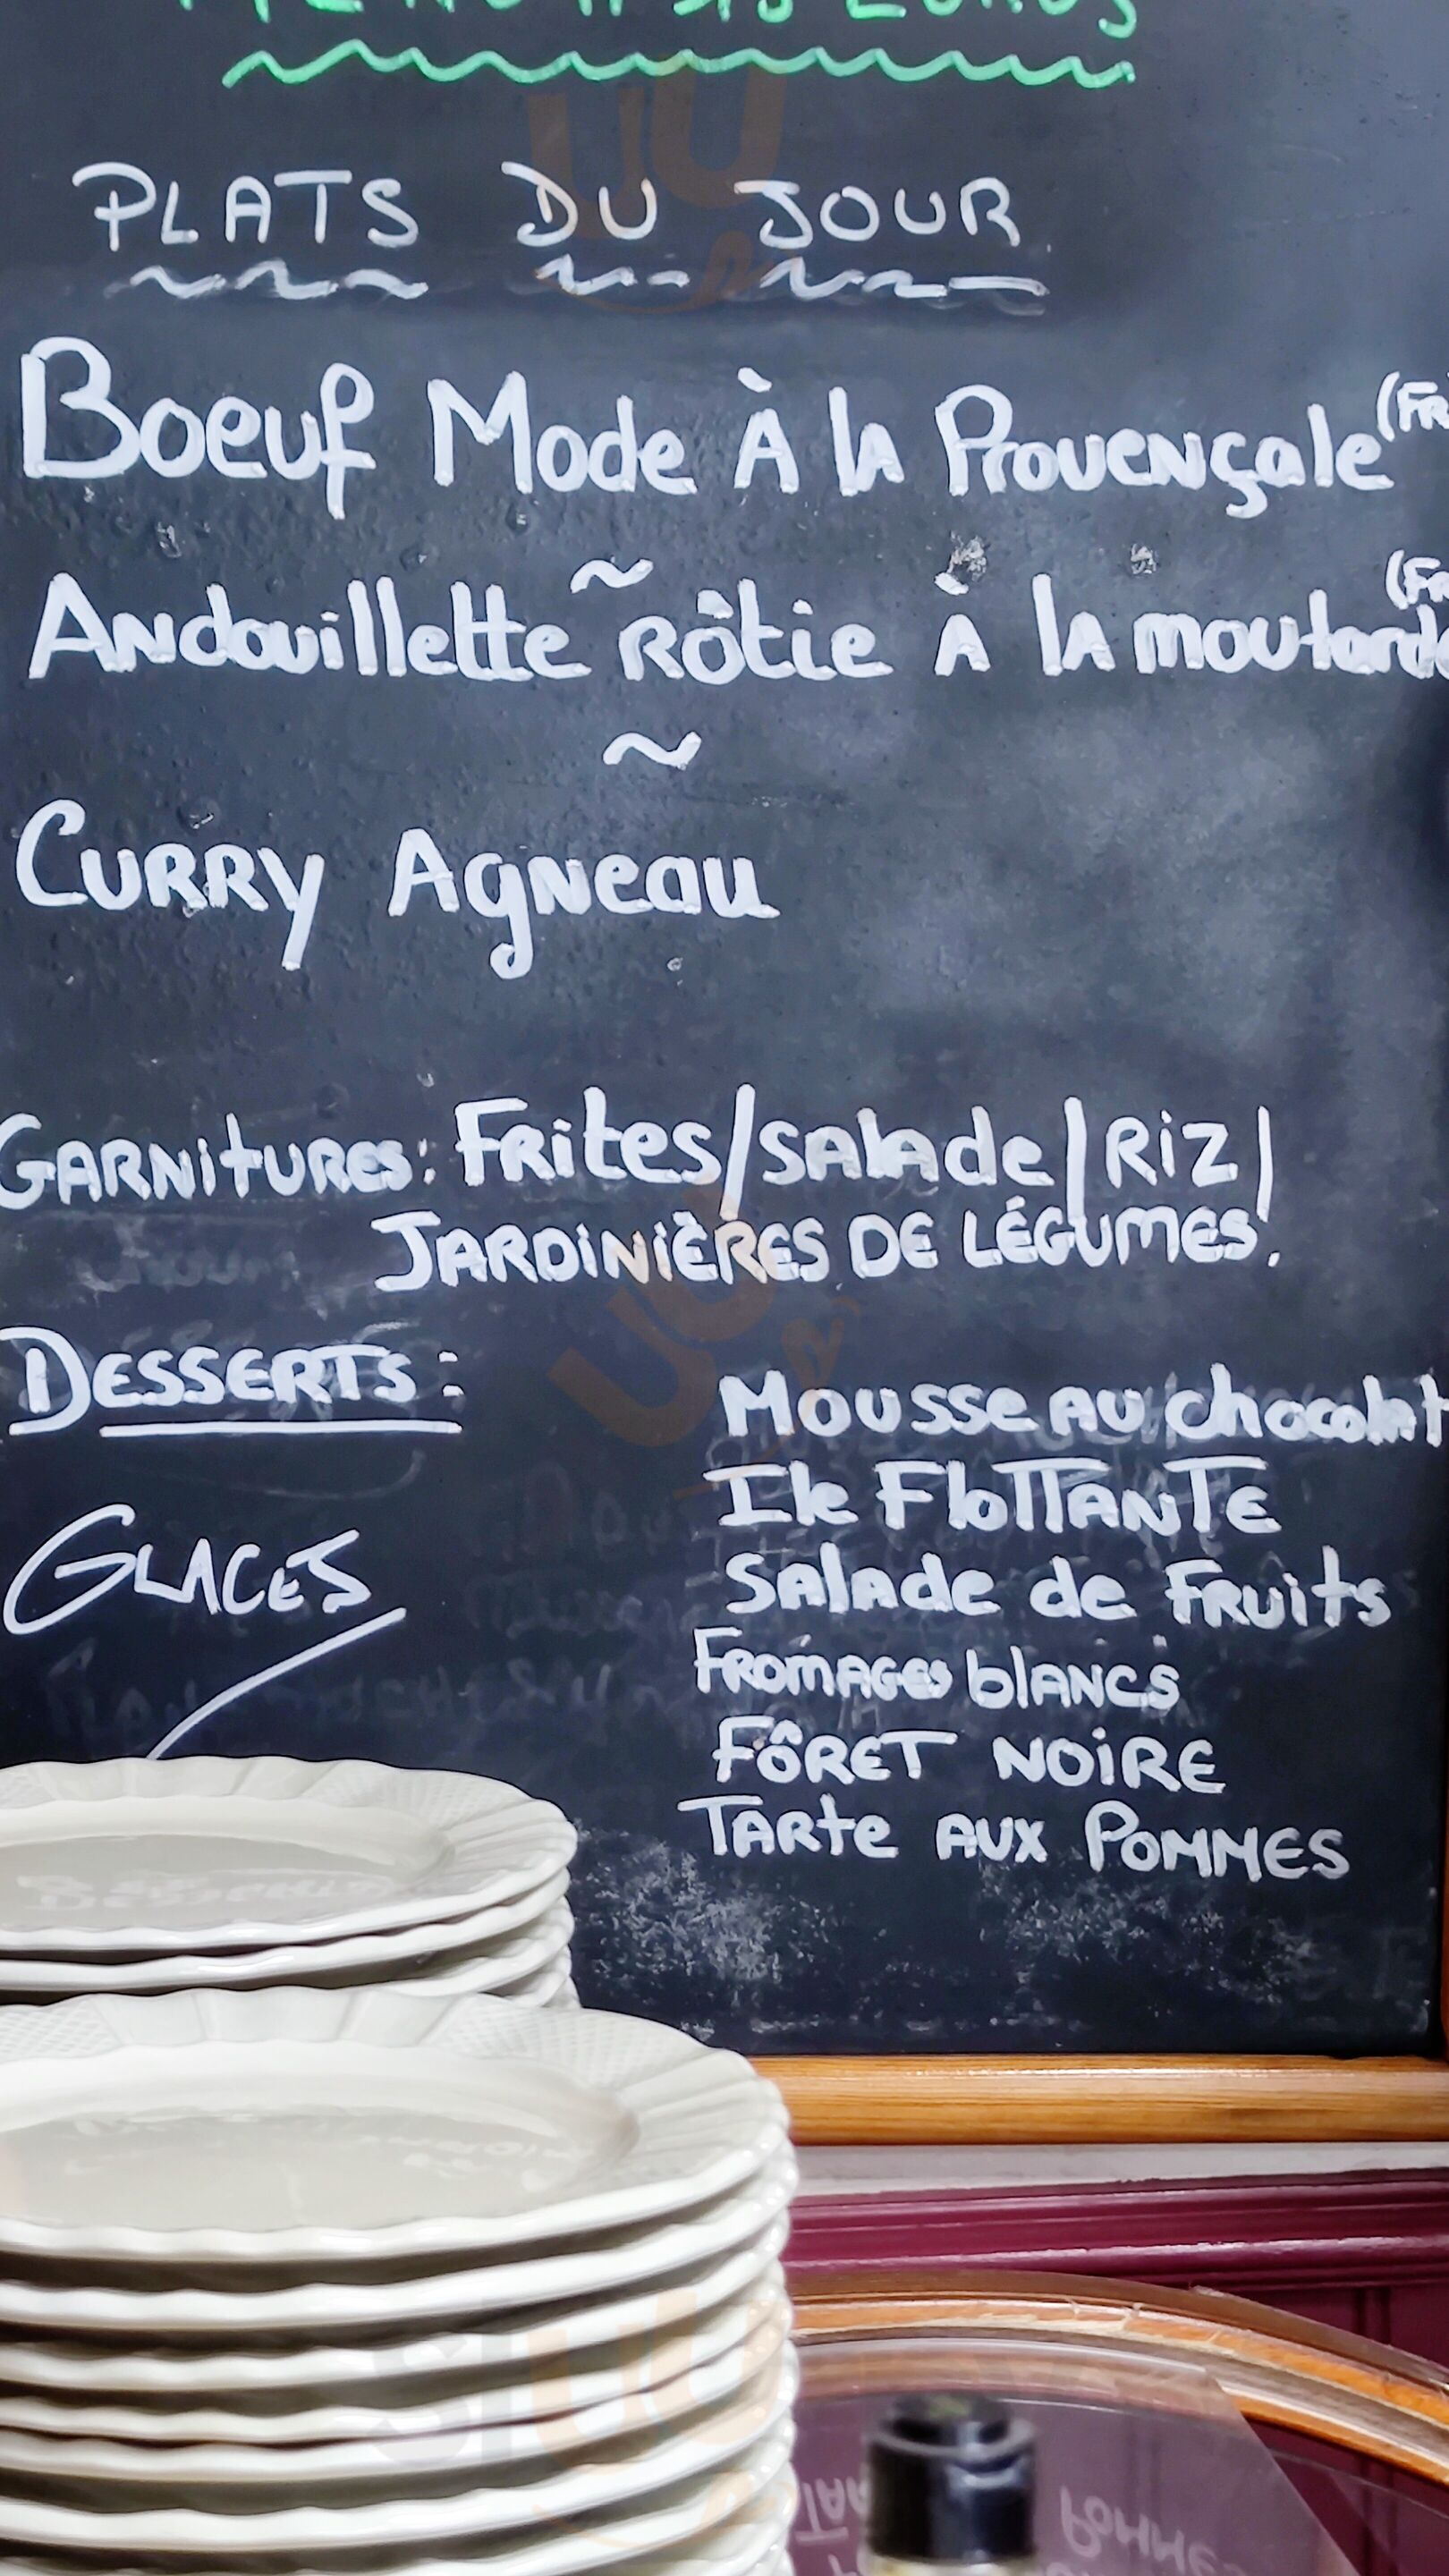 PLATS DU JOUR
Boeuf Mode À la Provençale (FR
Andouillette Rôtie à la moutarde (FR
~
Curry Agneau
Garnitures: Frites/salade/Riz/
Jardinières de légumes.
Desserts:
Glaces
Mousse au chocolat
Ile Flottante
Salade de Fruits
Fromages blancs
Fôret Noire
Tarte aux Pommes